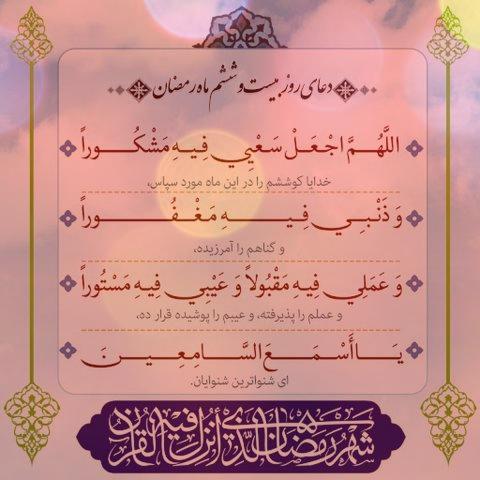 دعای روز بیست و ششم ماه رمضان
اللَّهُمَّ اجْعَلْ سَعْيِي فِيهِ مَشْكُوراً
خدایا کوششم را در این ماه مورد سپاس،
وَ ذَنْبِي فِيهِ مَغْفُوراً
و گناهم را آمرزیده،
وَ عَمَلِي فِيهِ مَقْبُولاً وَ عَيْبِي فِيهِ مَسْتُوراً
و عملم را پذیرفته، و عیبم را پوشیده قرار ده،
يَا أَسْمَعَ السَّامِعِينَ
ای شنواترین شنوایان.
شَهْرُ رَمَضَانَ الَّذِي أُنْزِلَ فِيهِ الْقُرْآنُ